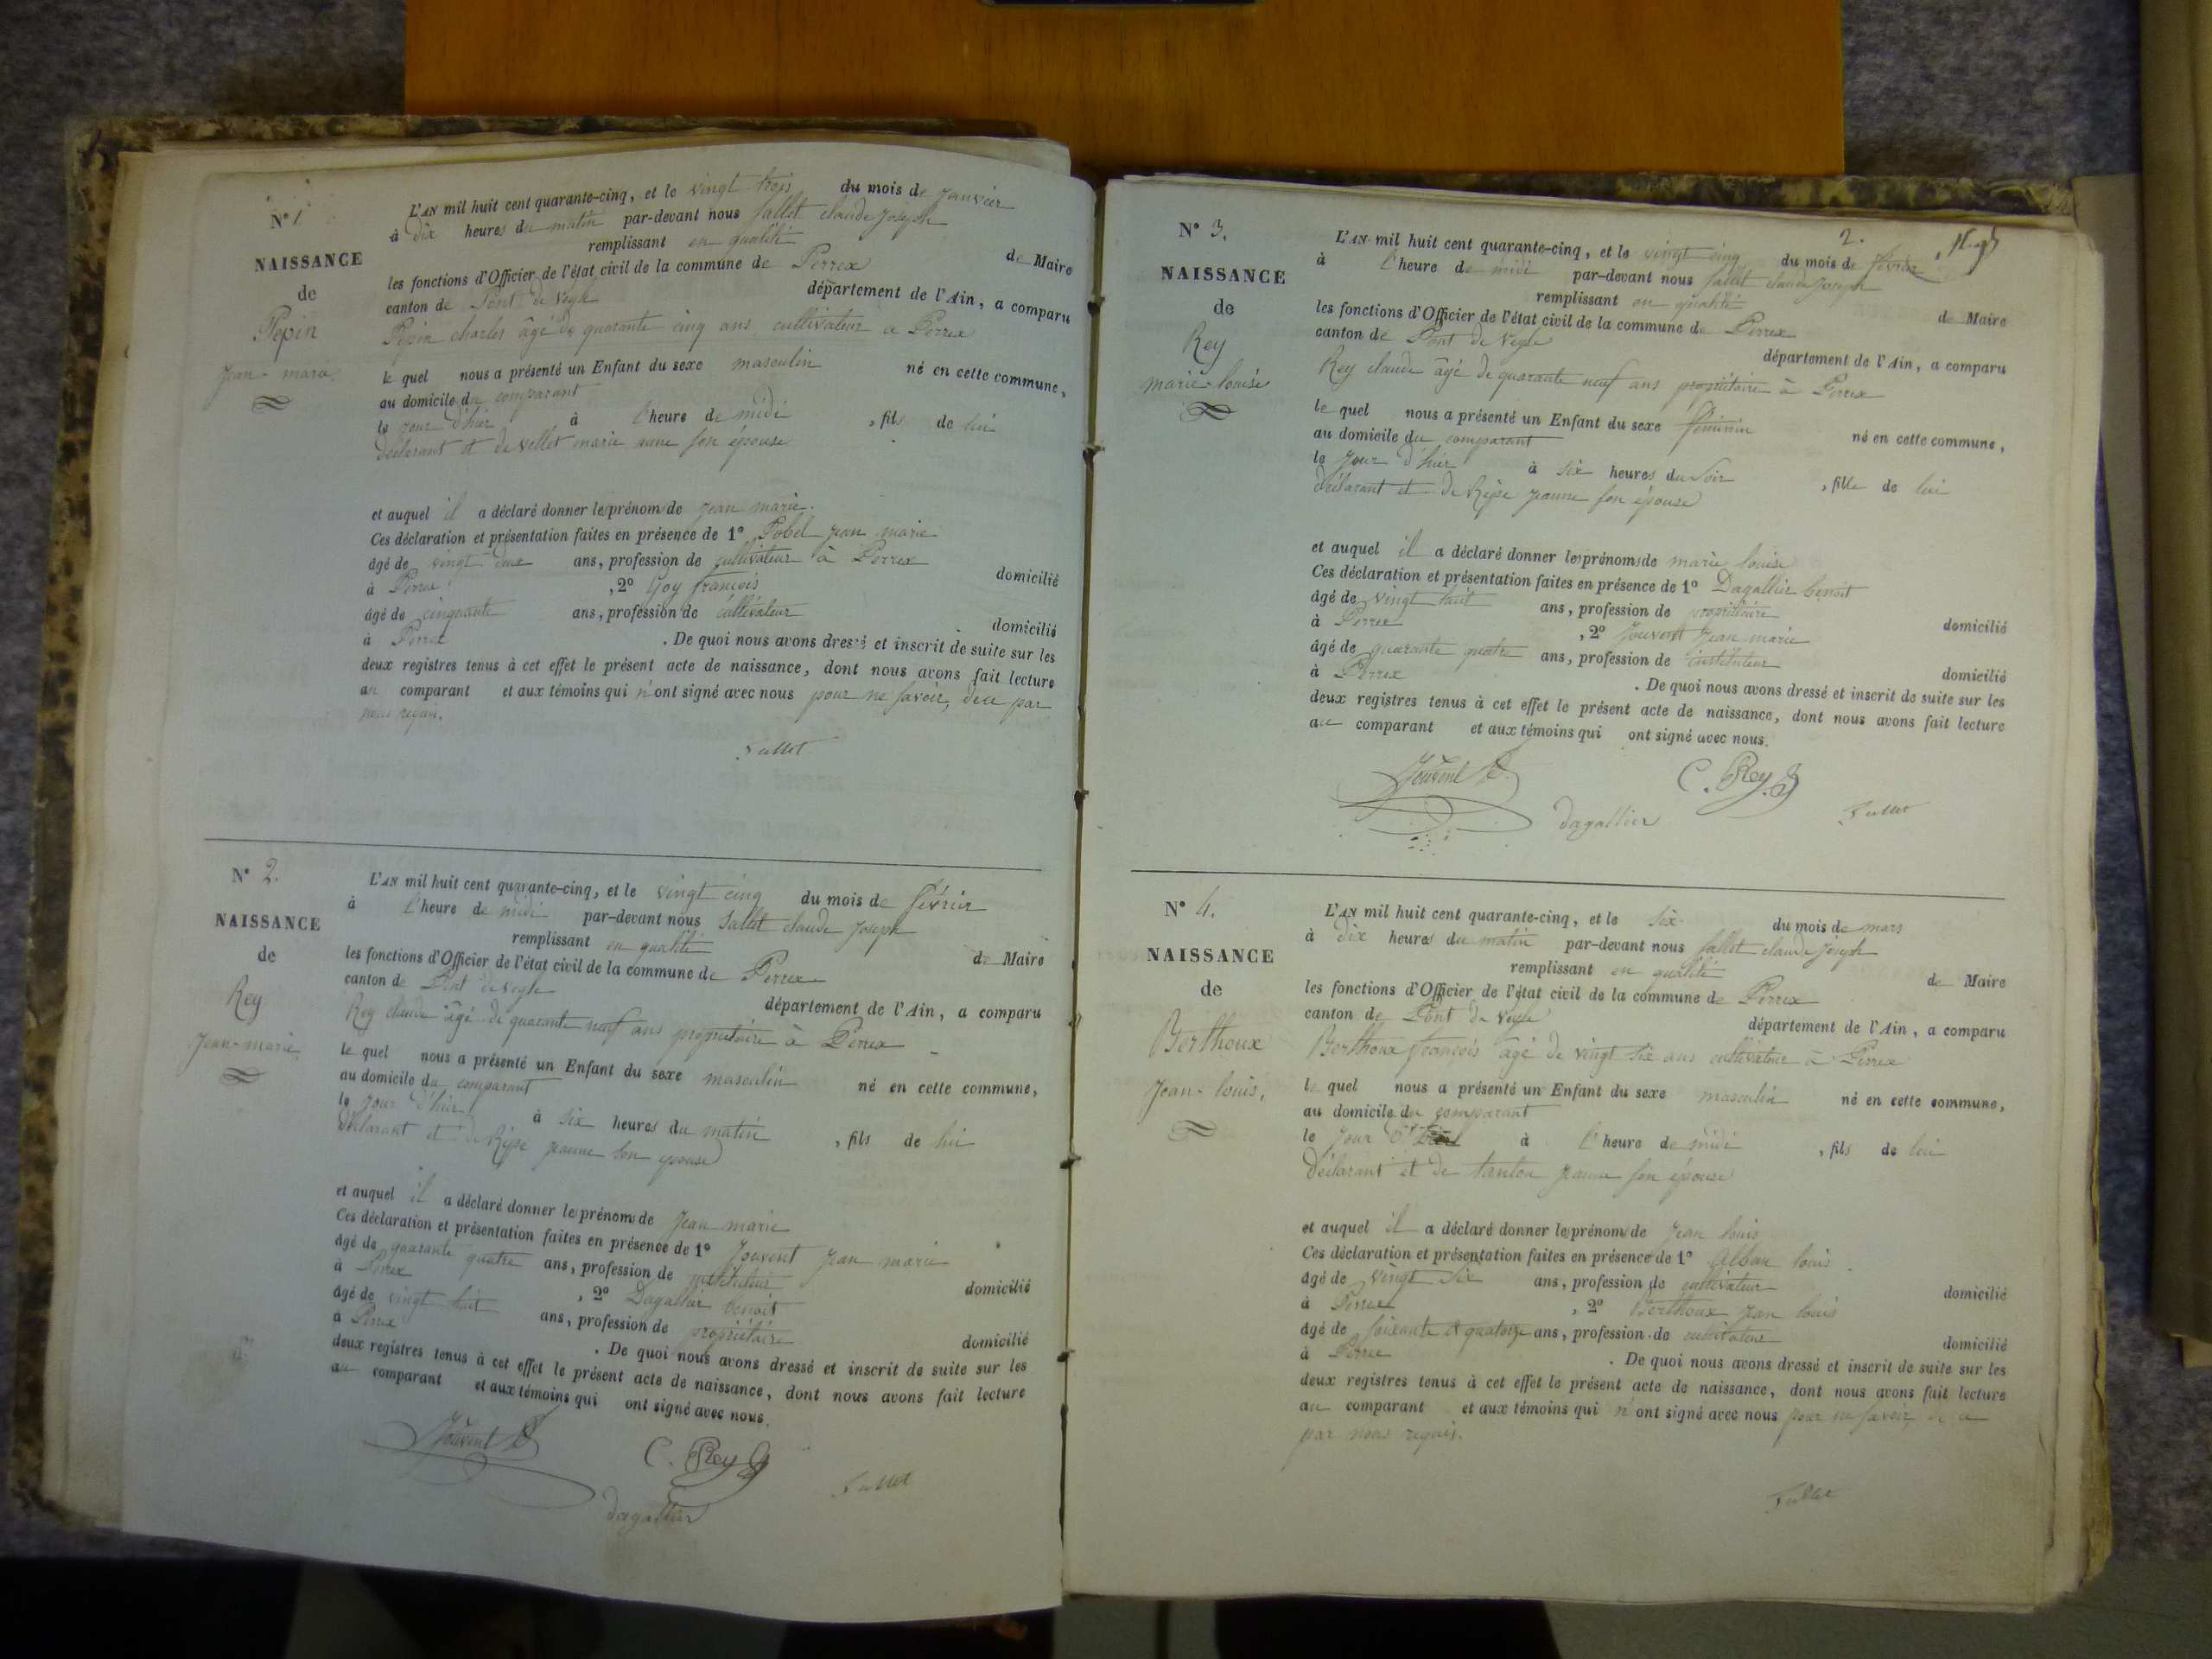 N° 1
NAISSANCE
de
Pepin
Jean-marie.
L'AN mil huit cent quarante-cinq, et le vingt trois du mois de Janvier
à dix heures du matin par-devant nous Sallet claude Joseph
remplissant en qualité de Maire
les fonctions d'Officier de l'état civil de la commune de Perrex
canton de Pont de Veyle département de l'Ain, a comparu
Pepin charles âgé de quarante cinq ans cultivateur à Perrex
le quel nous a présenté un Enfant du sexe masculin né en cette commune,
au domicile du comparant
le jour d'hier à l'heure de midi, fils de lui
déclarant et de vellet marie anne son épouse
et auquel il a déclaré donner les prénoms de jean marie.
Ces déclaration et présentation faites en présence de 1° Pobel jean marie
âgé de vingt deux ans, profession de cultivateur à Perrex domicilié
à Perrex, 2° Goy françois
âgé de cinquante ans, profession de cultivateur domicilié
à Perrex. De quoi nous avons dressé et inscrit de suite sur les
deux registres tenus à cet effet le présent acte de naissance, dont nous avons fait lecture
au comparant et aux témoins qui n'ont signé avec nous pour ne savoir, de ce par
nous requis.
Sallet
N° 2.
NAISSANCE
de
Rey
Jean-marie
L'AN mil huit cent quarante-cinq, et le vingt cinq du mois de février
à l'heure de midi par-devant nous Sallet claude Joseph
remplissant en qualité de Maire
les fonctions d'Officier de l'état civil de la commune de Perrex
canton de Pont de Veyle département de l'Ain, a comparu
Rey claude âgé de quarante neuf ans propriétaire à Perrex
le quel nous a présenté un Enfant du sexe masculin né en cette commune,
au domicile du comparant
le jour d'hier à six heures du matin, fils de lui
déclarant et de Jeanne son épouse
et auquel il a déclaré donner les prénoms de Jean marie
Ces déclaration et présentation faites en présence de 1° Jouvent Jean marie
âgé de quarante quatre ans, profession de instituteur domicilié
à Perrex, 2° Dagallier benoit
âgé de vingt huit ans, profession de propriétaire domicilié
à Perrex. De quoi nous avons dressé et inscrit de suite sur les
deux registres tenus à cet effet le présent acte de naissance, dont nous avons fait lecture
au comparant et aux témoins qui ont signé avec nous.
Jouvent
C. Rey
Sallet
Dagallier
2.
N° 3.
NAISSANCE
de
Rey
marie-louise
L'AN mil huit cent quarante-cinq, et le vingt cinq du mois de février
à l'heure de midi par-devant nous Sallet claude Joseph
remplissant en qualité de Maire
les fonctions d'Officier de l'état civil de la commune de Perrex
canton de Pont de Veyle département de l'Ain, a comparu
Rey claude âgé de quarante neuf ans propriétaire à Perrex
le quel nous a présenté un Enfant du sexe féminin né en cette commune,
au domicile du comparant
le jour d'hier à six heures du Soir, fille de lui
déclarant et de Jeanne son épouse
et auquel il a déclaré donner les prénoms de marie louise
Ces déclaration et présentation faites en présence de 1° Dagallier benoit
âgé de vingt huit ans, profession de propriétaire domicilié
à Perrex, 2° Jouvent Jean marie
âgé de quarante quatre ans, profession de instituteur domicilié
à Perrex. De quoi nous avons dressé et inscrit de suite sur les
deux registres tenus à cet effet le présent acte de naissance, dont nous avons fait lecture
au comparant et aux témoins qui ont signé avec nous.
Jouvent
C. Rey
dagallier
Sallet
N° 4.
NAISSANCE
de
Berthoux
Jean-louis.
L'AN mil huit cent quarante-cinq, et le six du mois de mars
à dix heures du matin par-devant nous Sallet claude Joseph
remplissant en qualité de Maire
les fonctions d'Officier de l'état civil de la commune de Perrex
canton de Pont de Veyle département de l'Ain, a comparu
Berthoux françois âgé de vingt six ans cultivateur à Perrex
le quel nous a présenté un Enfant du sexe masculin né en cette commune,
au domicile du comparant
le jour d'hier à l'heure de midi, fils de lui
déclarant et de tanton jeanne son épouse
et auquel il a déclaré donner les prénoms de Jean louis
Ces déclaration et présentation faites en présence de 1° Alban louis
âgé de vingt six ans, profession de cultivateur domicilié
à Perrex, 2° Berthoux Jean louis
âgé de soixante et quatorze ans, profession de cultivateur domicilié
à Perrex. De quoi nous avons dressé et inscrit de suite sur les
deux registres tenus à cet effet le présent acte de naissance, dont nous avons fait lecture
au comparant et aux témoins qui n'ont signé avec nous pour ne savoir, de ce
par nous requis.
Sallet